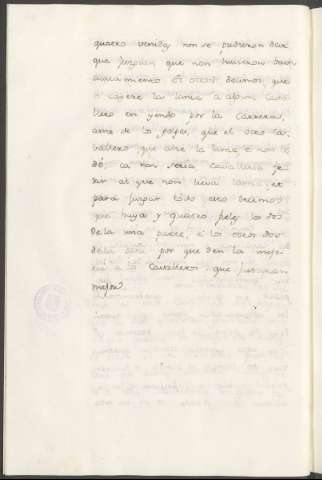 quatro venidas non se pudieren decir
que juzguen que non huvieron buen
acaescimiento. Et otrosi decimos que
si cayere la lanza a algun cava
llero en yendo por la carrera,
ante de los golpes, que el otro ca
vallero que alze la lanza e non le
dé, ca non seria cavalleria fe
rir al que non lieva lanza, et
para juzgar todo esto decimos
que haya y quatro fieles los dos
de la una parte, e los otros dos
de la otra por que den la mejo
ria a los Cavalleros que justaren
mejor.